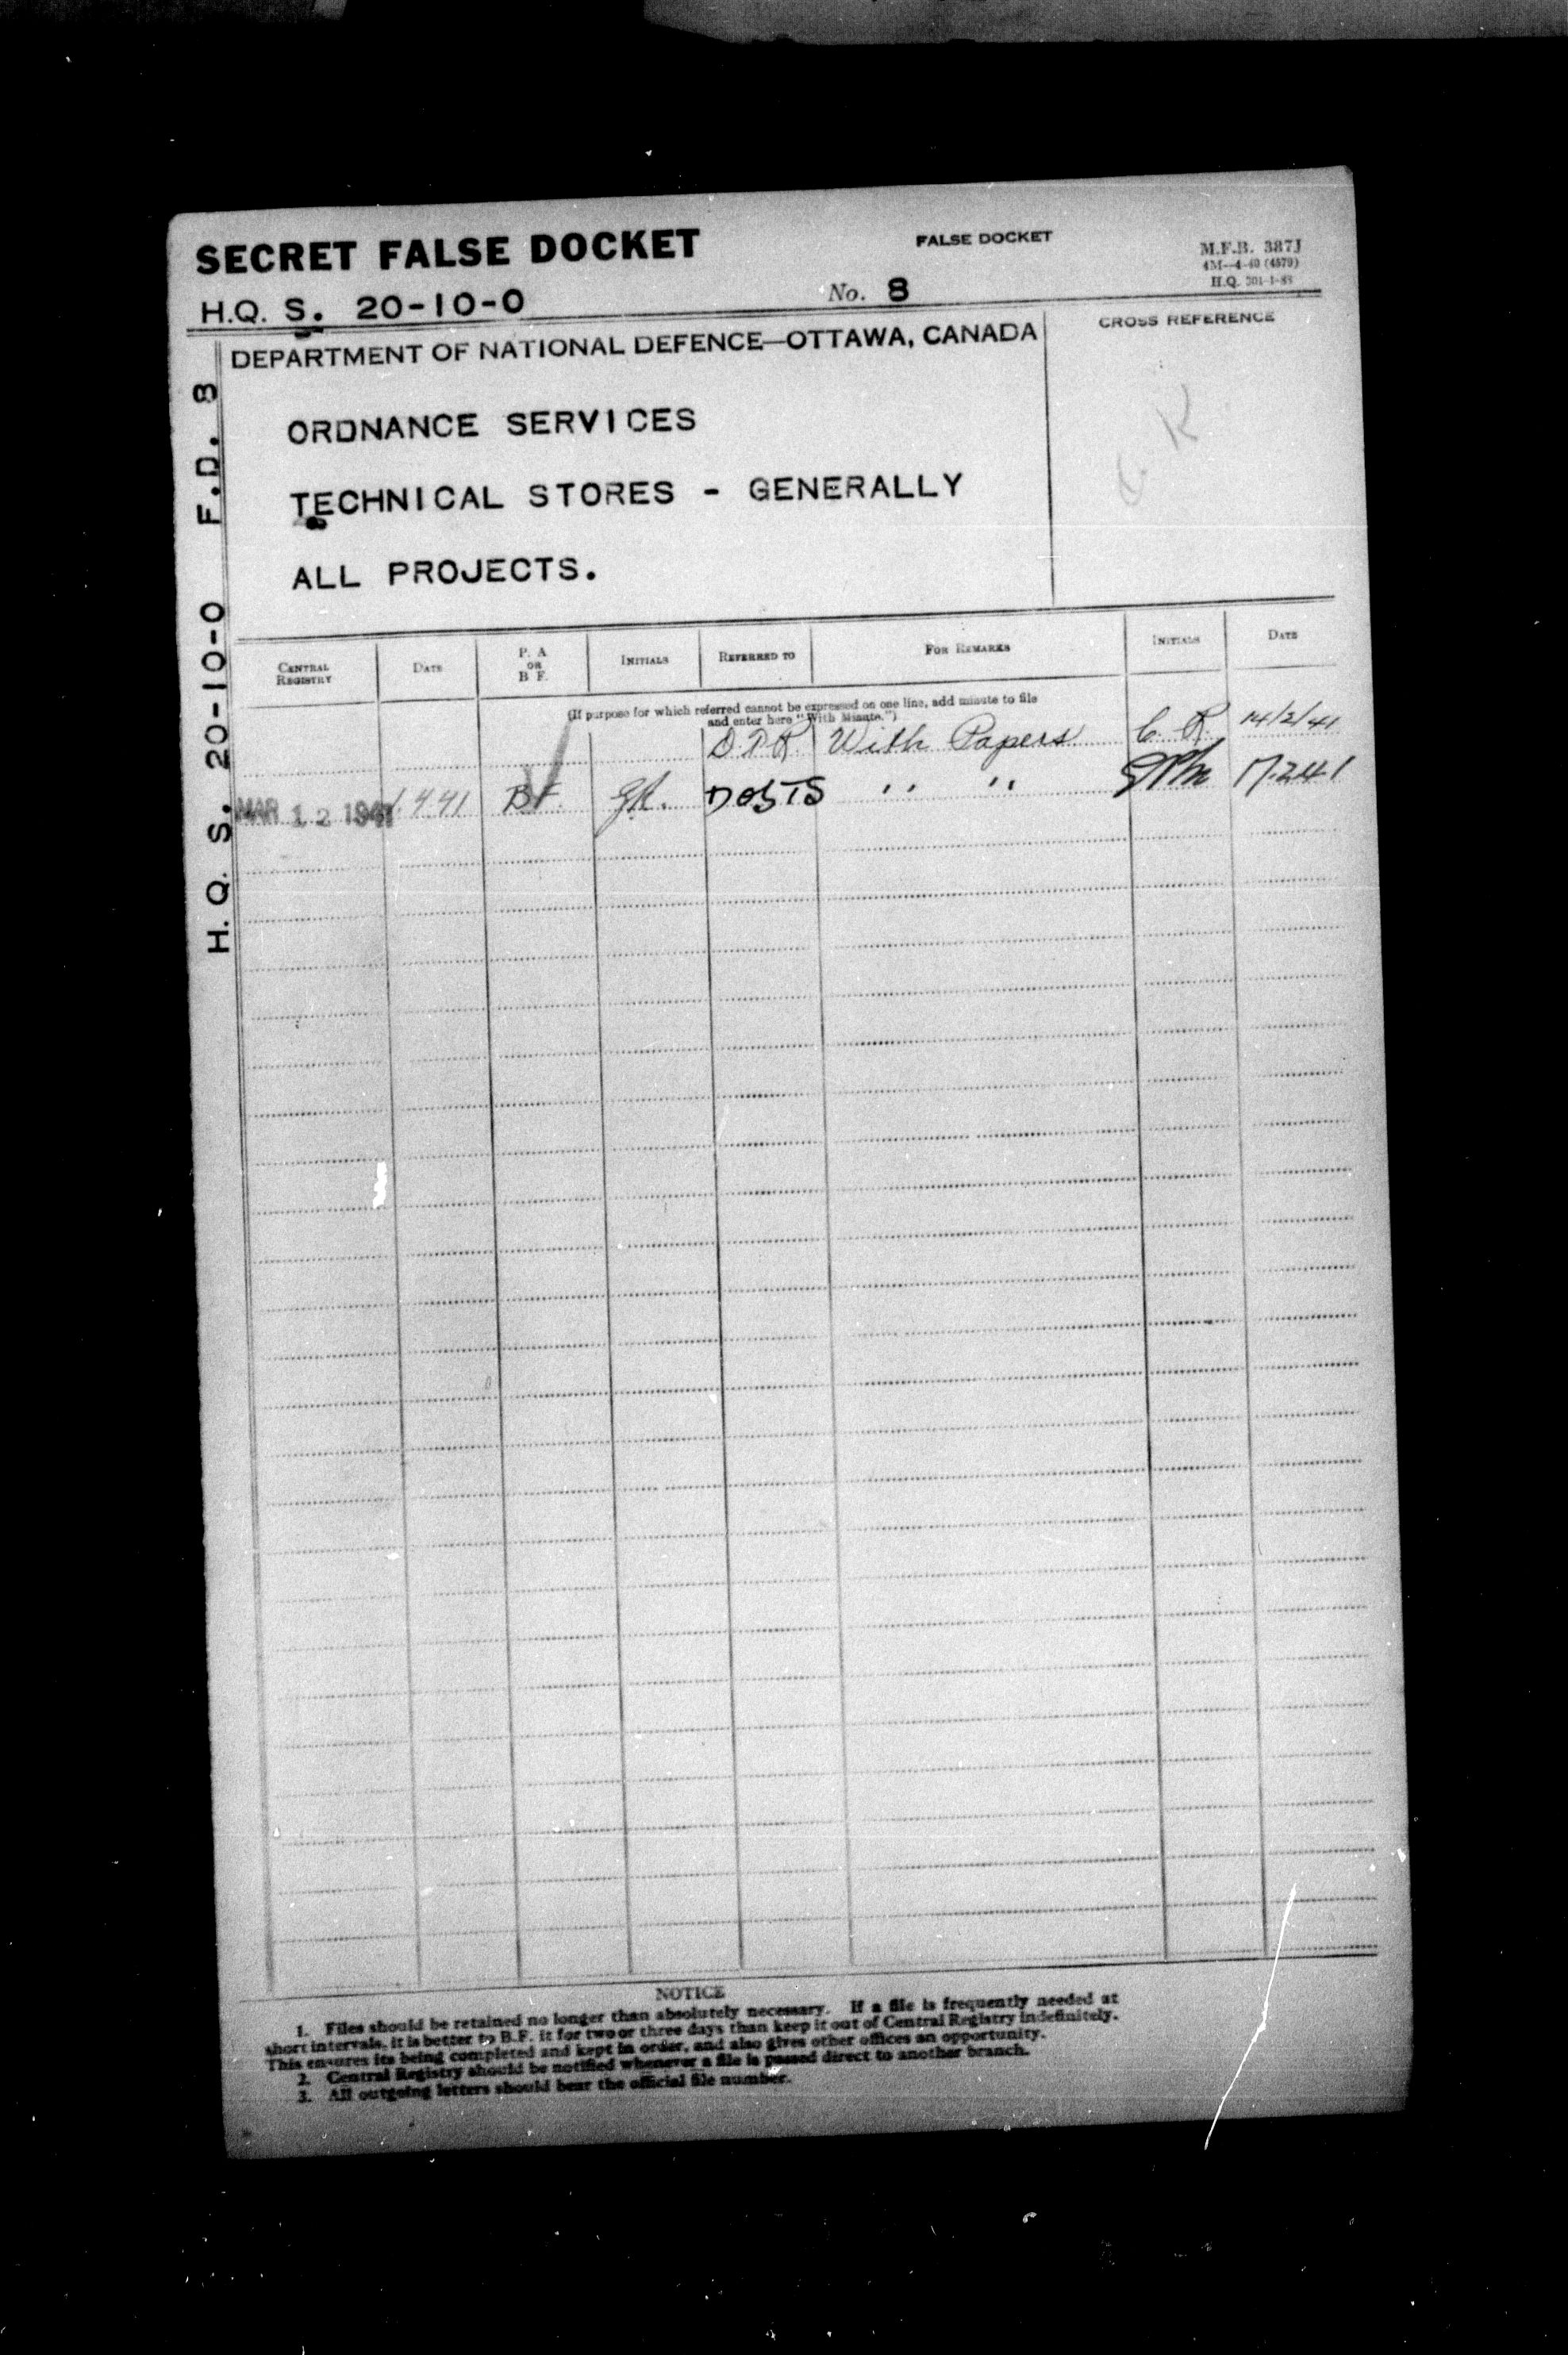 SECRET FALSE DOCKET
FALSE DOCKET
M.F.B. 387J
4M—4-40 (4579)
H.Q. 301-1-88
H.Q. S. 20-10-0 No. 8
DEPARTMENT OF NATIONAL DEFENCE—OTTAWA, CANADA
CROSS REFERENCE
H. Q. S. 20-10-0 F.D. 8
ORDNANCE SERVICES
TECHNICAL STORES - GENERALLY
ALL PROJECTS.
CENTRAL REGISTRY DATE P. A OR B F. INITIALS REFERRED TO FOR REMARKS INITIALS DATE
(If purpose for which referred cannot be expressed on one line, add minute to file
and enter here "With Minute.")
With Papers C. R. 14/2/41
MAR 12 1941 1.4.41 BF. DOSTS " " 17.2.41
NOTICE
1. Files should be retained no longer than absolutely necessary. If a file is frequently needed at
short intervals, it is better to B.F. it for two or three days than keep it out of Central Registry indefinitely.
This ensures its being completed and kept in order, and also gives other offices an opportunity.
2. Central Registry should be notified whenever a file is passed direct to another branch.
3. All outgoing letters should bear the official file number.